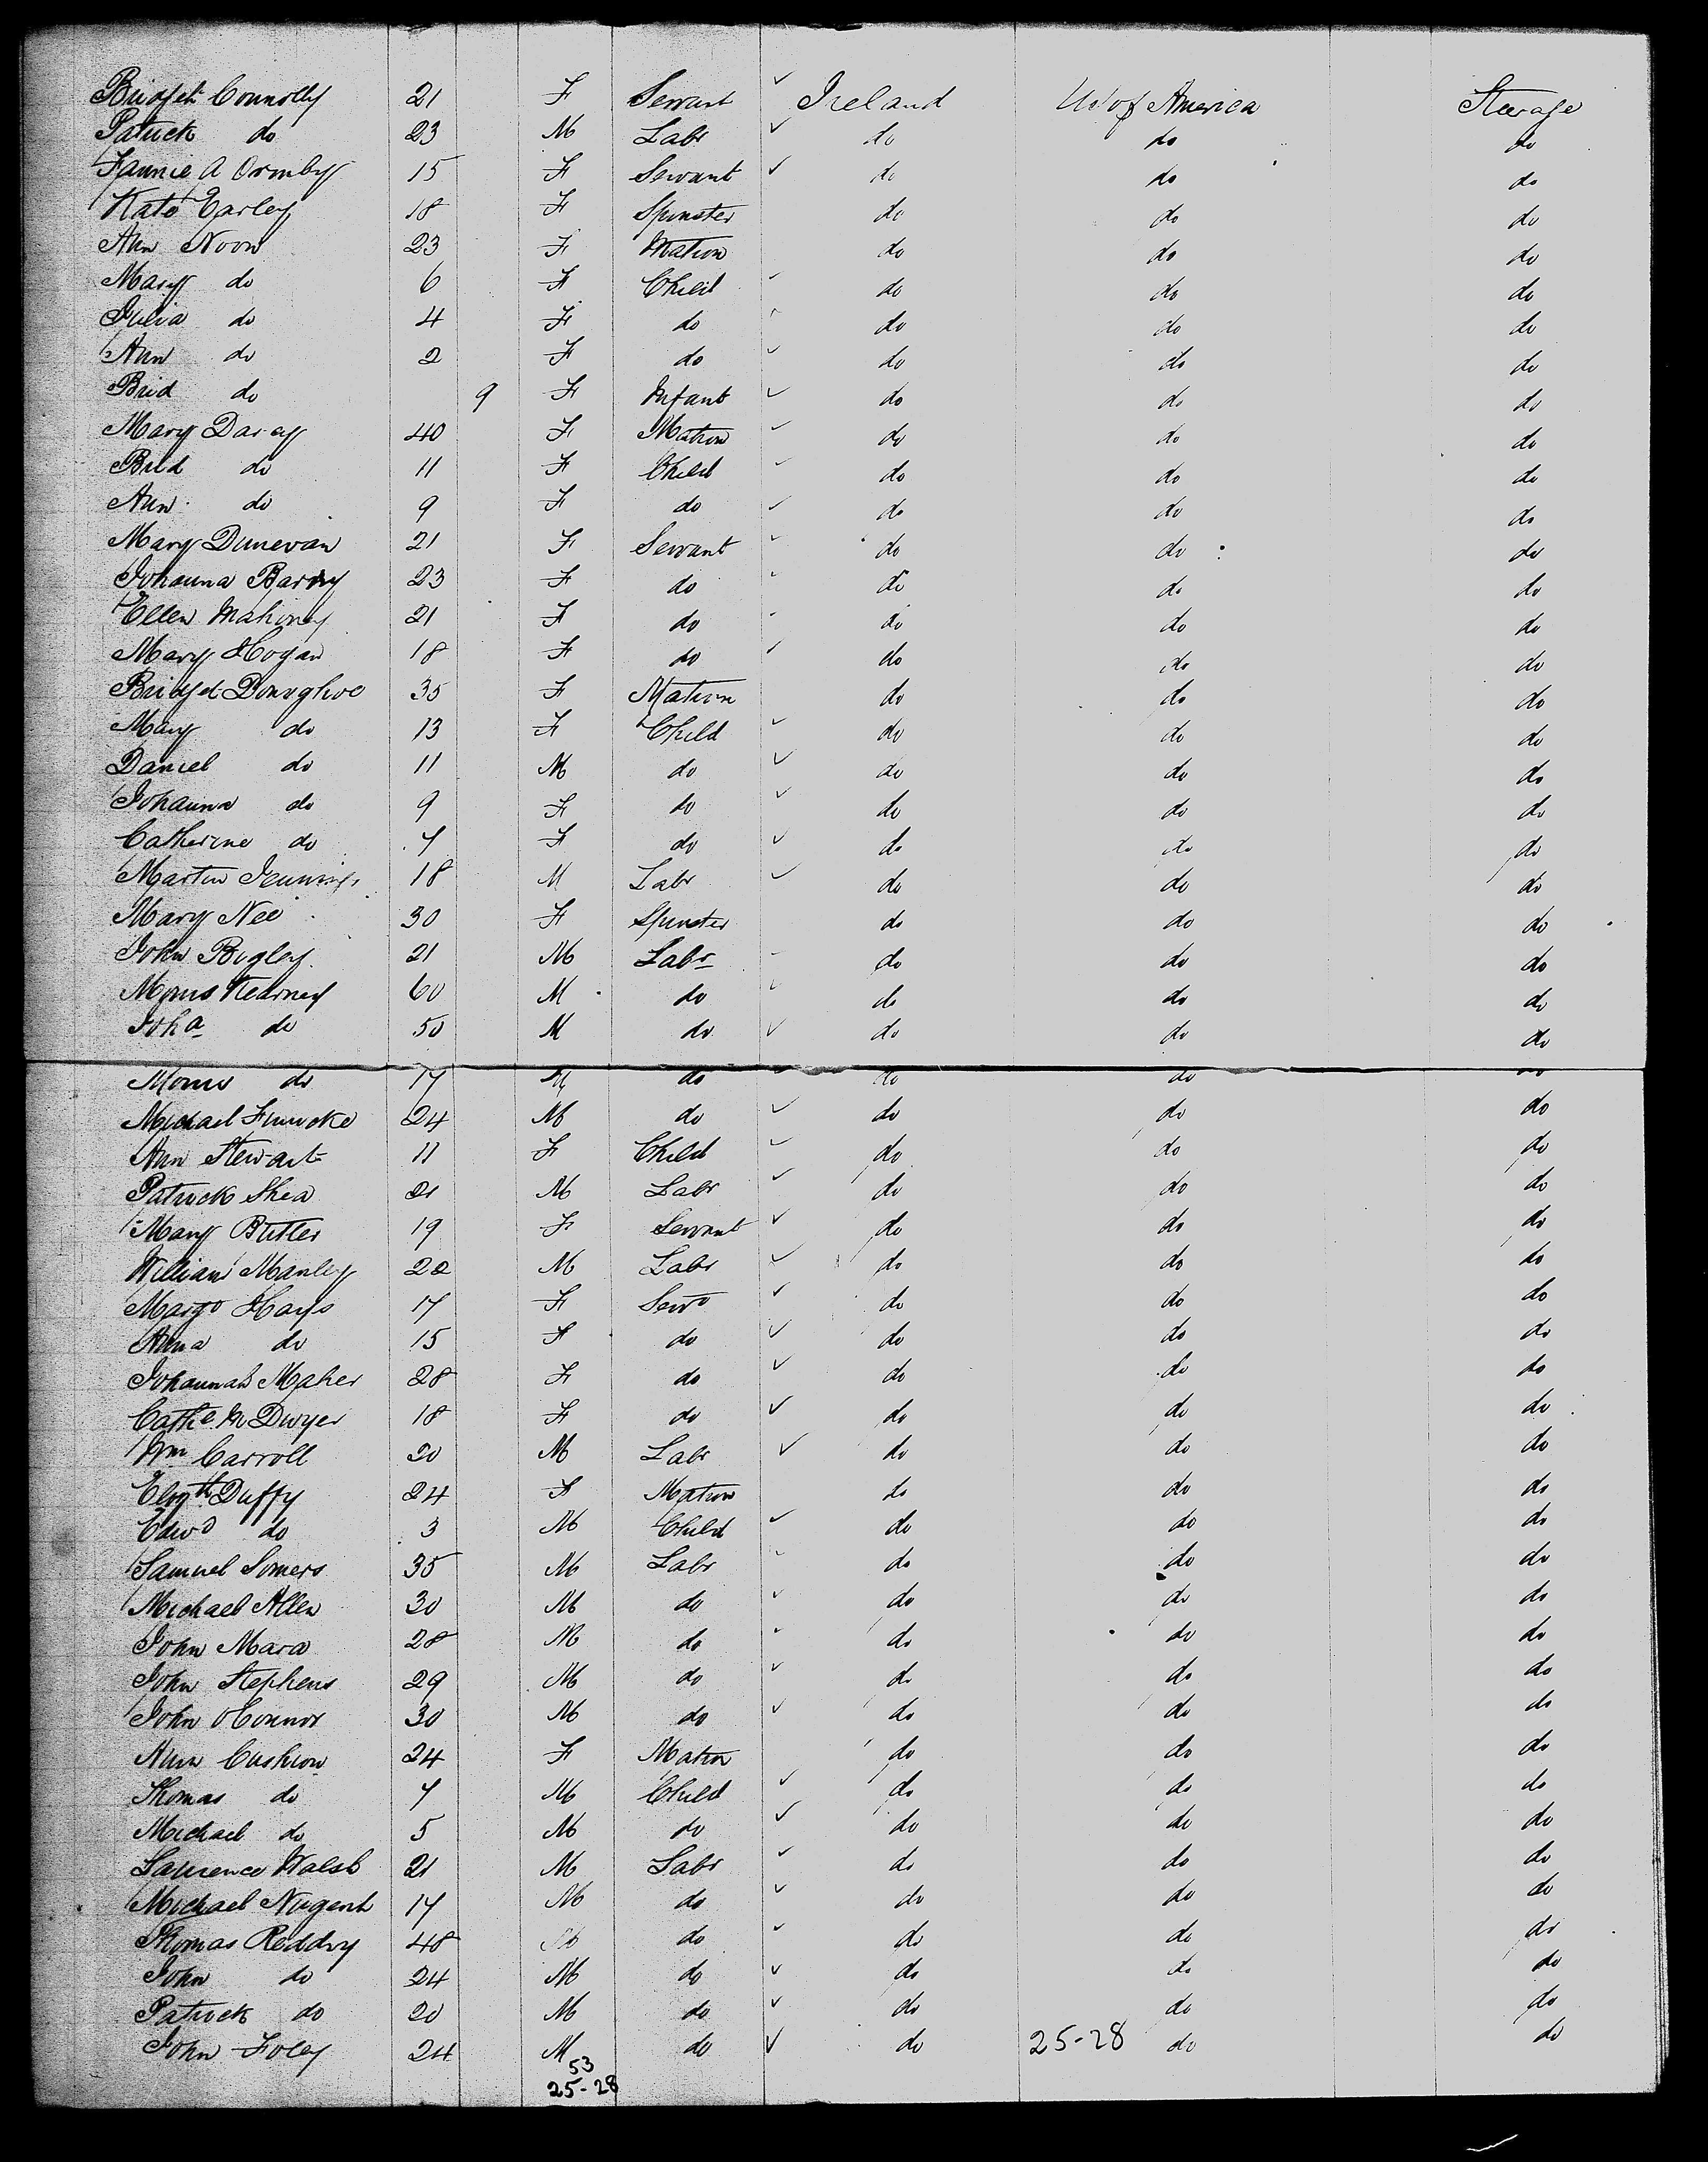 Bridget Connolly 21 F Servant Ireland US of America Steerage
Patrick do 23 M Labr do do do
Fannie A Ormsby 15 F Servant do do do
Kate Earley 18 F Spinster do do do
Ann Noon 23 F Matron do do do
Mary do 6 F Child do do do
Julia do 4 F do do do do
Ann do 2 F do do do do
Brid do 9 F Infant do do do
Mary Darcy 40 F Matron do do do
Brid do 11 F Child do do do
Ann do 9 F do do do do
Mary Dunevan 21 F Servant do do do
Johanna Barry 23 F do do do do
Ellen Mahony 21 F do do do do
Mary Hogan 18 F do do do do
Bridget Donoghoe 35 F Matron do do do
Mary do 13 F Child do do do
Daniel do 11 M do do do do
Johanna do 9 F do do do do
Catherine do 7 F do do do do
Martin Jennings 18 M Labr do do do
Mary Nee 30 F Spinster do do do
John Bogley 21 M Labr do do do
Morris Kearney 60 M do do do do
Joha do 50 M do do do do
Morris do 17 M do do do do
Michael Finucke 24 M do do do do
Ann Stewart 11 F Child do do do
Patrick Shea 21 M Labr do do do
Mary Butler 19 F Servant do do do
William Manley 22 M Labr do do do
Margt Hays 17 F Servt do do do
Anna do 15 F do do do do
Johannah Maher 28 F do do do do
Cathe M Dwyer 18 F do do do do
Wm Carroll 20 M Labr do do do
Elizth Duffy 24 F Matron do do do
Edwd do 3 M Child do do do
Samuel Somers 35 M Labr do do do
Michael Allen 30 M do do do do
John Mara 28 M do do do do
John Stephens 29 M do do do do
John OConnor 30 M do do do do
Ann Cushion 24 F Matron do do do
Thomas do 7 M Child do do do
Michael do 5 M do do do do
Laurence Walsh 21 M Labr do do do
Michael Nugent 17 M do do do do
Thomas Reddy 48 M do do do do
John do 24 M do do do do
Patrick do 20 M do do do do
John Foley 24 M do do 25-28 do do
53
25-28